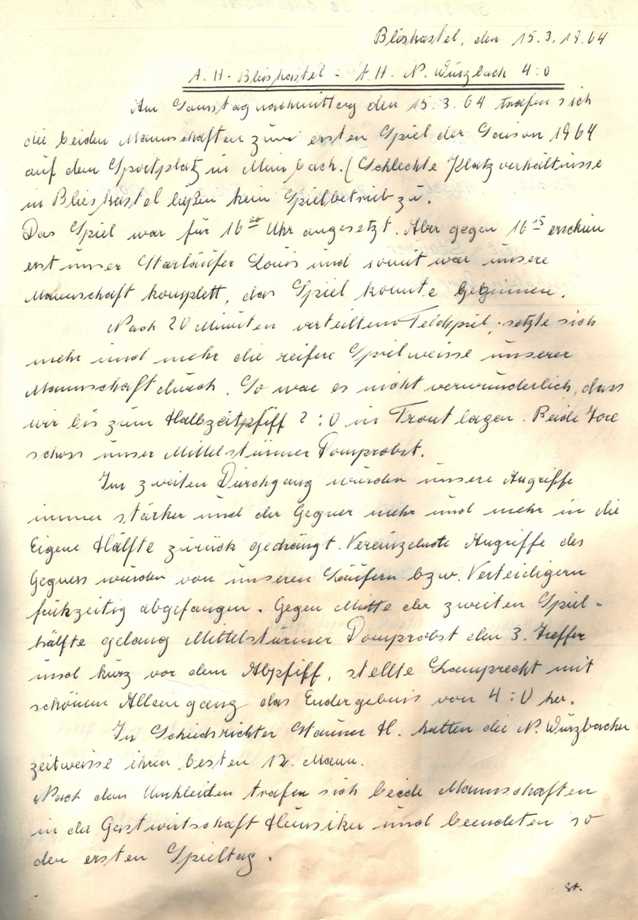 Blieskastel, den 15.3.1964
A.H. Blieskastel - A.H. N. Würzbach 4:0
Am Samstagnachmittag den 15.3.64 trafen sich
die beiden Mannschaften zum ersten Spiel der Saison 1964
auf dem Sportplatz in (Schlechte Platzverhältnisse
in Blieskastel ließen kein Spielbetrieb zu.
Das Spiel war für 16 00 Uhr angesetzt. Aber gegen 16 15 erschien
erst unser Starläufer Louis und somit war unsere
Mannschaft komplett, das Spiel konnte beginnen.
Nach 20 Minuten verteiltem Feldspiel, setzte sich
mehr und mehr die reifere Spielweisse unserer
Mannschaft durch. So war es nicht verwunderlich, dass
wir bis zum Halbzeitpfiff 2:0 in Front lagen. Beide Tore
schoss unser Mittelstürmer Domprobst.
Im zweiten Durchgang wurden unsere Angriffe
immer stärker und der Gegner mehr und mehr in die
Eigene Hälfte zurück gedrängt. Vereinzelnte Angriffe des
Gegners wurden von unseren Läufern bzw. Verteidigern
frühzeitig abgefangen. Gegen Mitte der zweiten Spiel-
hälfte gelang Mittelstürmer Domprobst den 3. Treffer
und kurz vor dem Abpfiff, stellte Lamprecht mit
schönem Alleingang das Endergebnis von 4:0 her.
In Schiedsrichter H. hatten die N. Würzbacher
zeitweisse ihren besten 12. Mann.
Nach dem Umkleiden trafen sich beide Mannschaften
in der Gastwirtschaft und beendeten so
den ersten Spieltag.